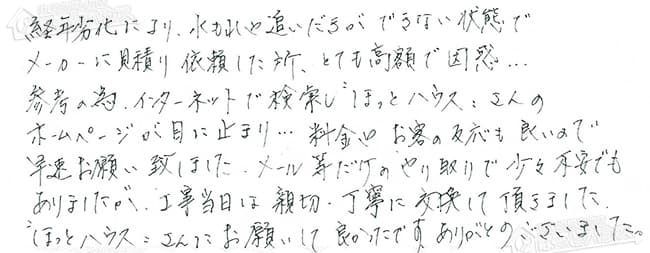 経年劣化により、水もれと追いだきができない状態で
メーカーに見積り依頼した所、とても高額で困惑…
参考の為、インターネットで検索し"ほっとハウス"さんの
ホームページが目に止まり… 料金や お客の反応も良いので
早速お願い致しました。メール等だけのやり取りで少々不安でも
ありましたが、工事当日は親切、丁寧に交換して頂きました。
"ほっとハウス"さんにお願いして良かったです ありがとうございました。